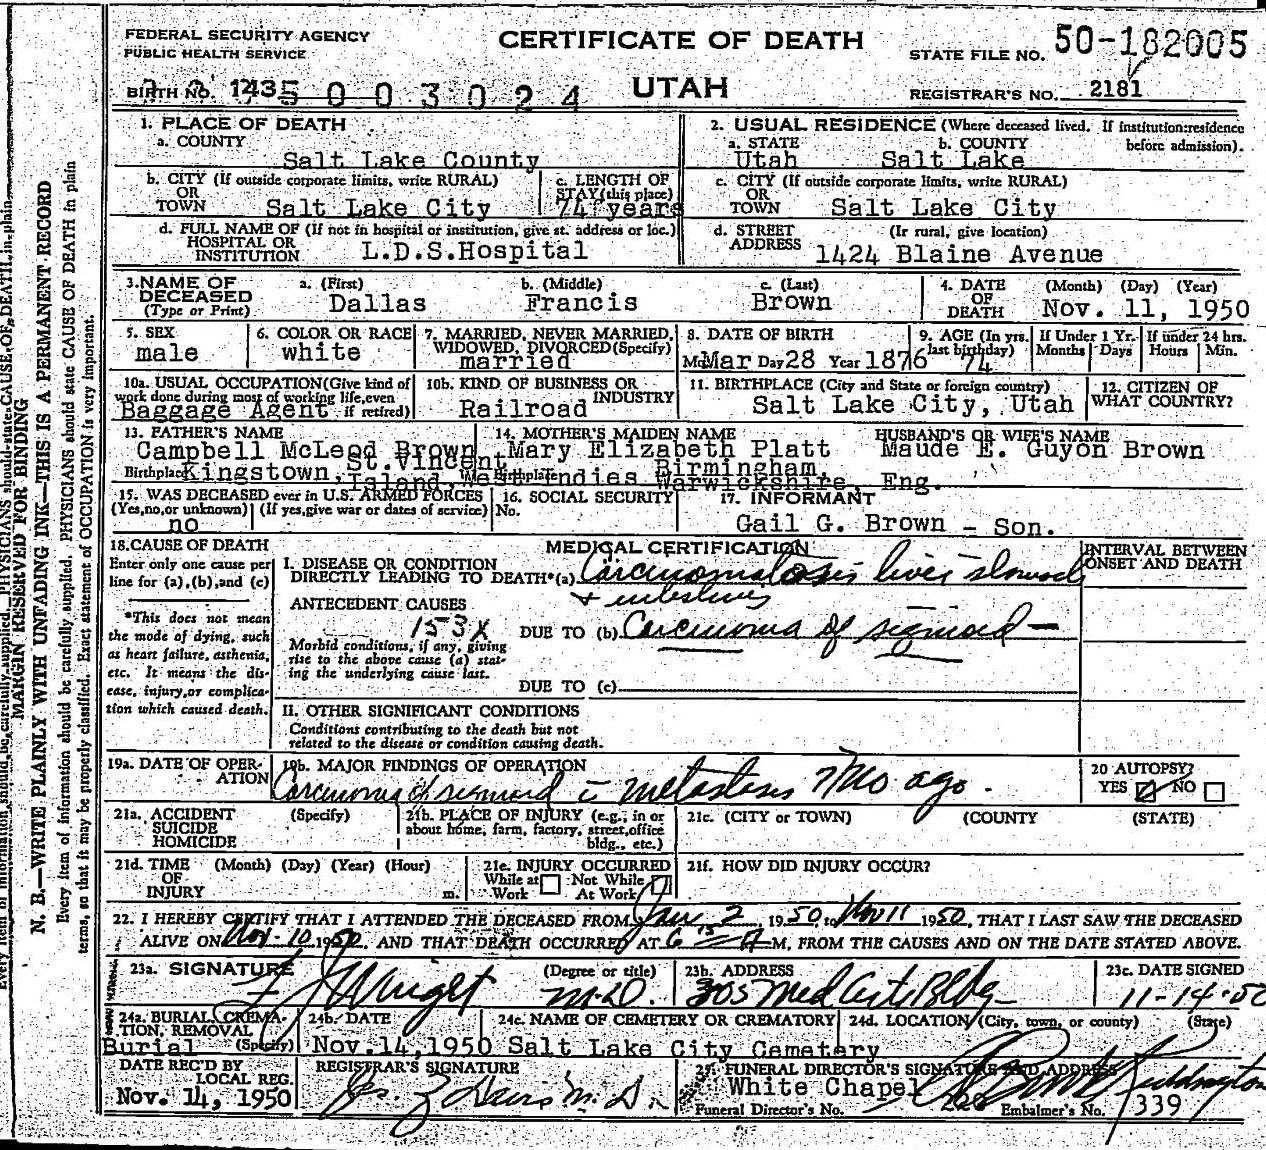 FEDERAL SECURITY AGENCY
PUBLIC HEALTH SERVICE
CERTIFICATE OF DEATH
STATE FILE NO. 50-182005
BIRTH NO. 1435 003024
UTAH
REGISTRAR'S NO. 2181
MARGIN RESERVED FOR BINDING
N. B.—WRITE PLAINLY WITH UNFADING INK—THIS IS A PERMANENT RECORD
Every item of information should be carefully supplied. PHYSICIANS should state CAUSE OF DEATH in plain
terms, so that it may be properly classified. Exact statement of OCCUPATION is very important.
1. PLACE OF DEATH
a. COUNTY
Salt Lake County
2. USUAL RESIDENCE (Where deceased lived. If institution: residence before admission).
a. STATE
Utah
b. COUNTY
Salt Lake
b. CITY (If outside corporate limits, write RURAL)
OR
TOWN Salt Lake City
c. LENGTH OF STAY (this place)
74 years
c. CITY (If outside corporate limits, write RURAL)
OR
TOWN Salt Lake City
d. FULL NAME OF (If not in hospital or institution, give st. address or loc.)
HOSPITAL OR
INSTITUTION L.D.S.Hospital
d. STREET ADDRESS (Ir rural, give location)
1424 Blaine Avenue
3. NAME OF DECEASED
(Type or Print)
a. (First)
Dallas
b. (Middle)
Francis
c. (Last)
Brown
4. DATE OF DEATH (Month) (Day) (Year)
Nov. 11, 1950
5. SEX
male
6. COLOR OR RACE
white
7. MARRIED, NEVER MARRIED, WIDOWED, DIVORCED (Specify)
married
8. DATE OF BIRTH
Mar Day 28 Year 1876
9. AGE (In yrs. last birthday)
74
If Under 1 Yr.
Months Days
If under 24 hrs.
Hours Min.
10a. USUAL OCCUPATION (Give kind of work done during most of working life, even if retired)
Baggage Agent
10b. KIND OF BUSINESS OR INDUSTRY
Railroad
11. BIRTHPLACE (City and State or foreign country)
Salt Lake City, Utah
12. CITIZEN OF WHAT COUNTRY?
13. FATHER'S NAME
Campbell McLeod Brown
Birthplace Kingstown, St. Vincent Island, West Indies
14. MOTHER'S MAIDEN NAME
Mary Elizabeth Platt
Birthplace Birmingham, Warwickshire, Eng.
HUSBAND'S OR WIFE'S NAME
Maude E. Guyon Brown
15. WAS DECEASED ever in U.S. ARMED FORCES
(Yes, no, or unknown) (If yes, give war or dates of service)
no
16. SOCIAL SECURITY No.
17. INFORMANT
Gail G. Brown - Son.
18. CAUSE OF DEATH
Enter only one cause per line for (a), (b), and (c)
*This does not mean the mode of dying, such as heart failure, asthenia, etc. It means the disease, injury, or complication which caused death.
MEDICAL CERTIFICATION
INTERVAL BETWEEN ONSET AND DEATH
I. DISEASE OR CONDITION
DIRECTLY LEADING TO DEATH*(a) Carcinomatosis liver stomach
+ intestines
ANTECEDENT CAUSES
153X
Morbid conditions, if any, giving rise to the above cause (a) stating the underlying cause last.
DUE TO (b) Carcinoma of sigmoid —
DUE TO (c)
II. OTHER SIGNIFICANT CONDITIONS
Conditions contributing to the death but not
related to the disease or condition causing death.
19a. DATE OF OPERATION
19b. MAJOR FINDINGS OF OPERATION
Carcinoma of sigmoid c̄ metastases 7 mo ago.
20 AUTOPSY?
YES NO
21a. ACCIDENT SUICIDE HOMICIDE (Specify)
21b. PLACE OF INJURY (e.g., in or about home, farm, factory, street, office bldg., etc.)
21c. (CITY or TOWN) (COUNTY (STATE)
21d. TIME OF INJURY (Month) (Day) (Year) (Hour) m.
21e. INJURY OCCURRED
While at Work Not While At Work
21f. HOW DID INJURY OCCUR?
22. I HEREBY CERTIFY THAT I ATTENDED THE DECEASED FROM Jan 2 1950, to Nov 11 1950, THAT I LAST SAW THE DECEASED
ALIVE ON Nov-10 1950, AND THAT DEATH OCCURRED AT 6 15 A M, FROM THE CAUSES AND ON THE DATE STATED ABOVE.
23a. SIGNATURE (Degree or title)
Wright M.D.
23b. ADDRESS
305 Med Arts Bldg
23c. DATE SIGNED
11-14-50
24a. BURIAL, CREMATION, REMOVAL (Specify)
Burial
24b. DATE
Nov.14,1950
24c. NAME OF CEMETERY OR CREMATORY
Salt Lake City Cemetery
24d. LOCATION (City, town, or county) (State)
DATE REC'D BY LOCAL REG.
Nov. 14, 1950
REGISTRAR'S SIGNATURE
M. D.
25. FUNERAL DIRECTOR'S SIGNATURE AND ADDRESS
White Chapel
Funeral Director's No. 220 Embalmer's No. 339